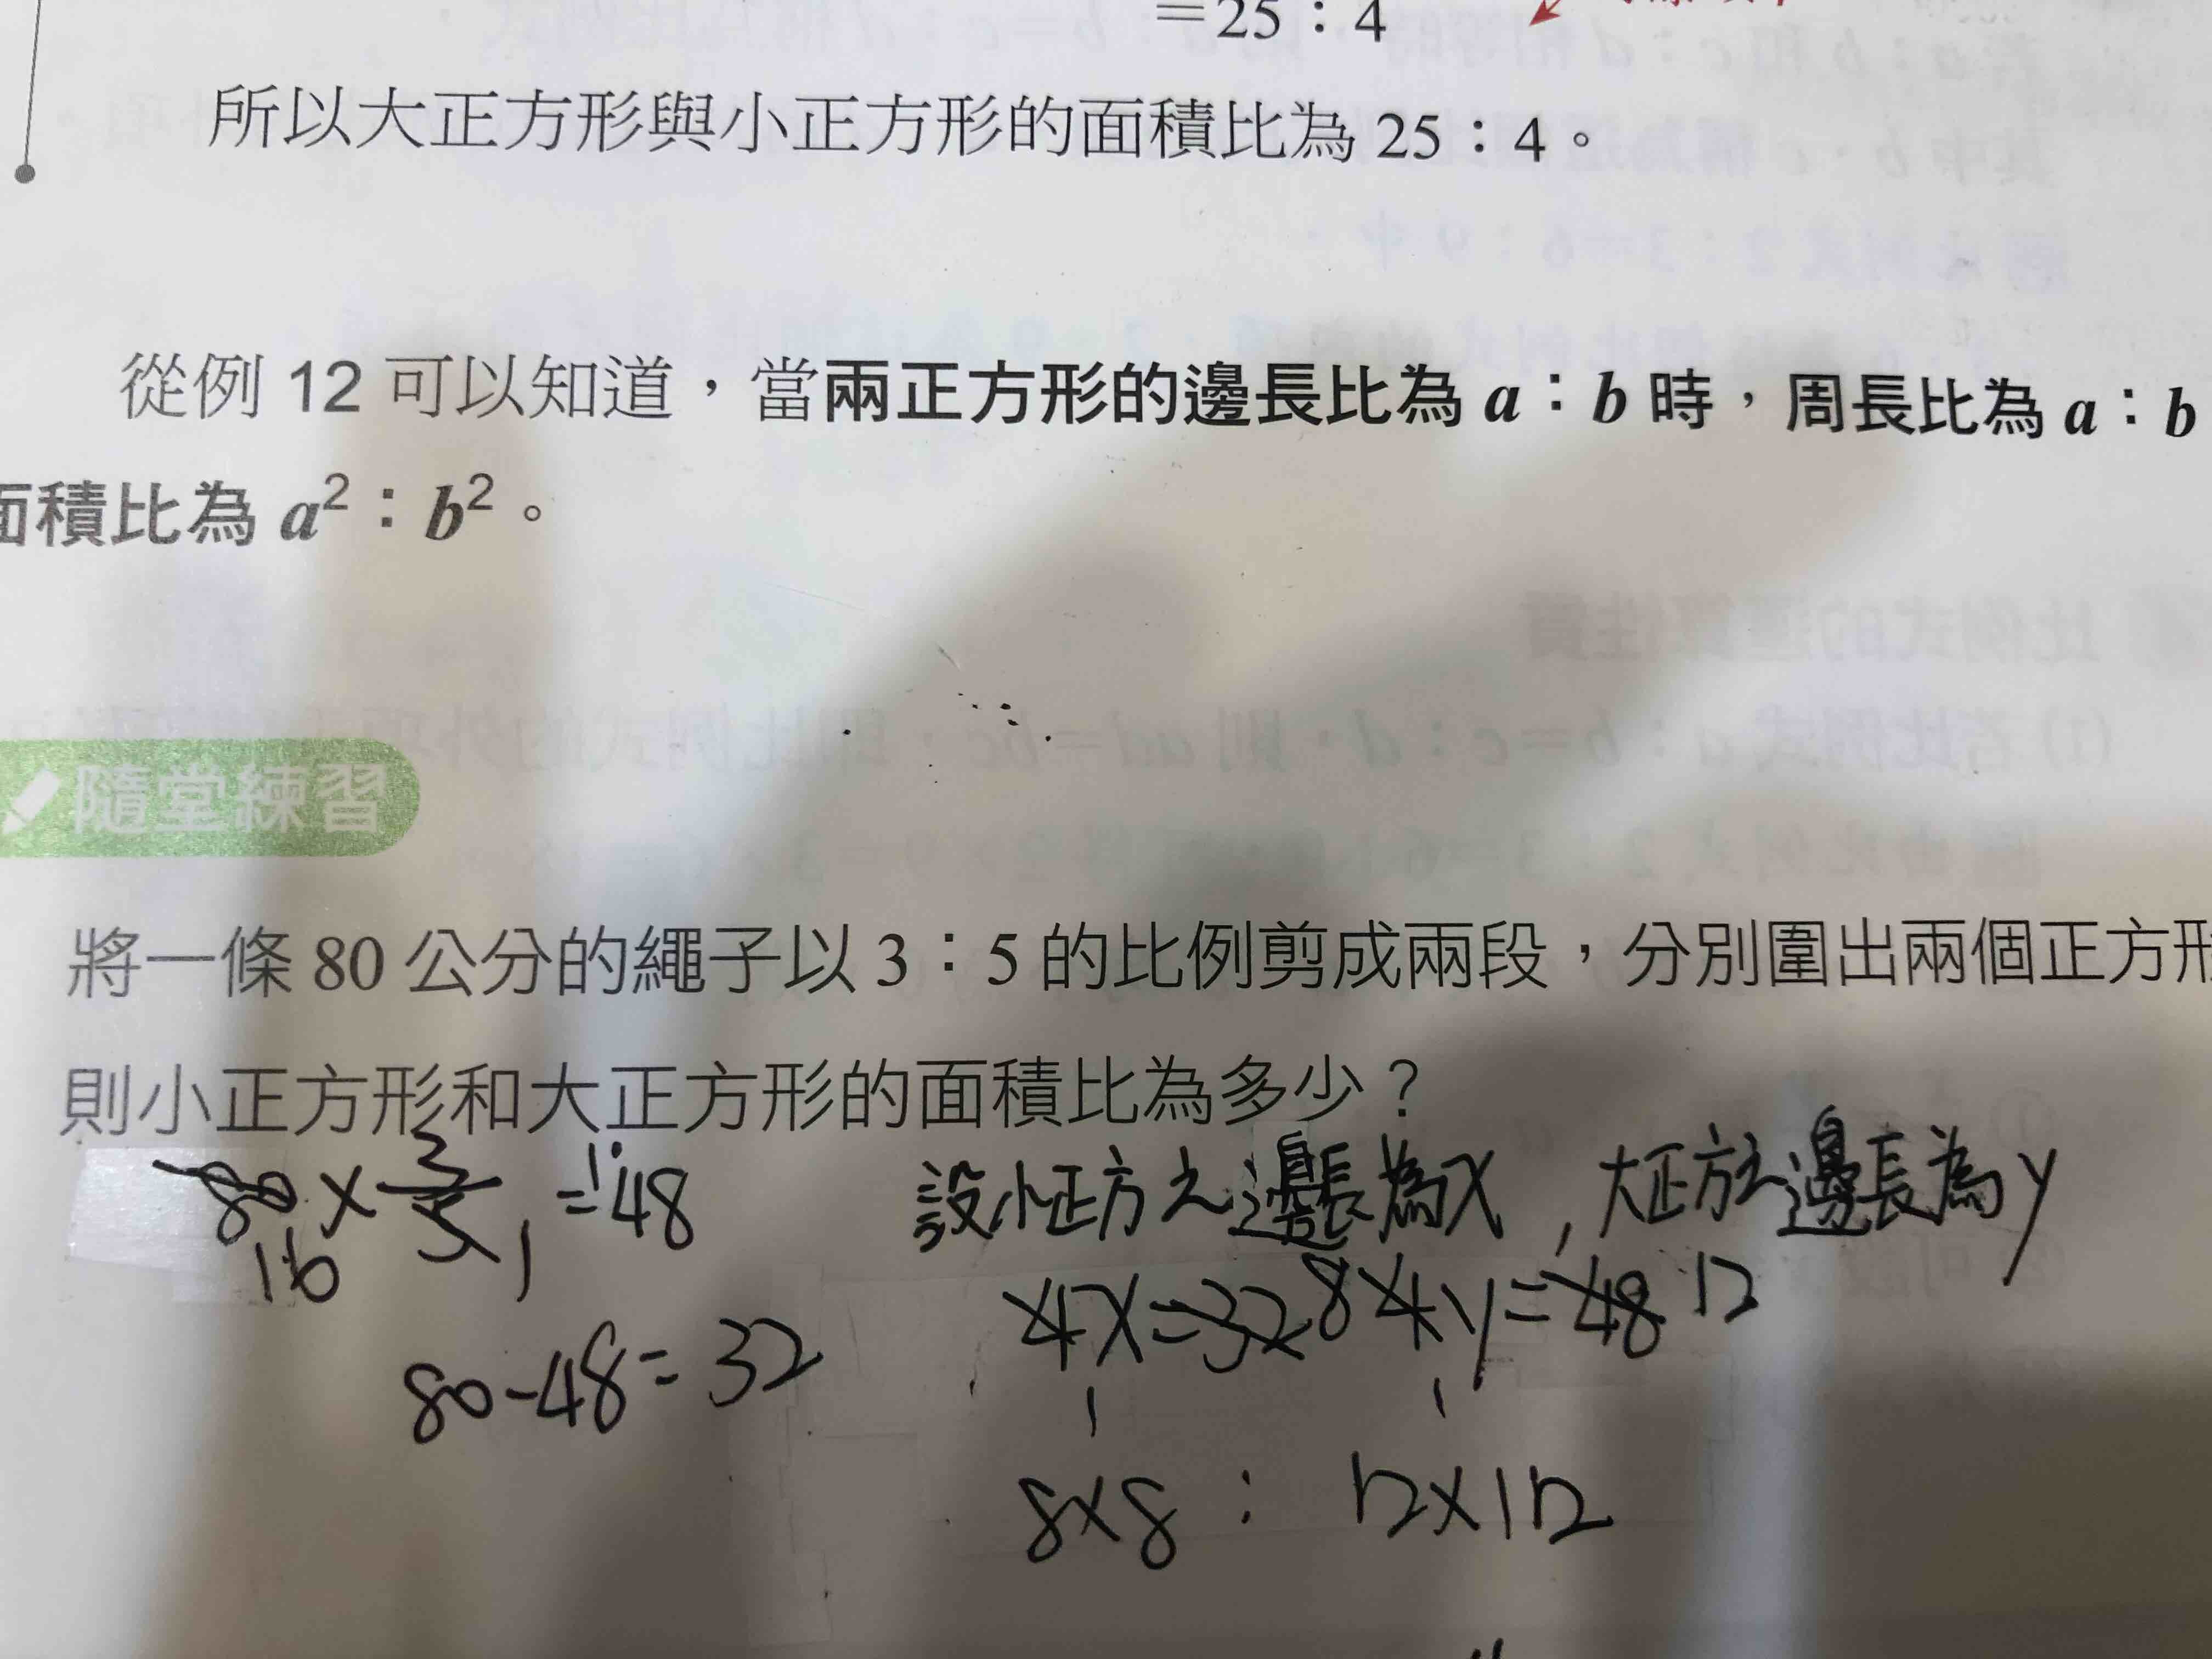 =25：4
所以大正方形與小正方形的面積比為 25：4。
從例 12 可以知道，當兩正方形的邊長比為 a：b 時，周長比為 a：b
面積比為 a²：b²。
隨堂練習
將一條 80 公分的繩子以 3：5 的比例剪成兩段，分別圍出兩個正方形
則小正方形和大正方形的面積比為多少？
80 × 3/5 = 48
16 1
80-48=32
設小正方之邊長為x，大正方之邊長為y
4x=32 8 4y=48 12
1 1
8×8 : 12×12